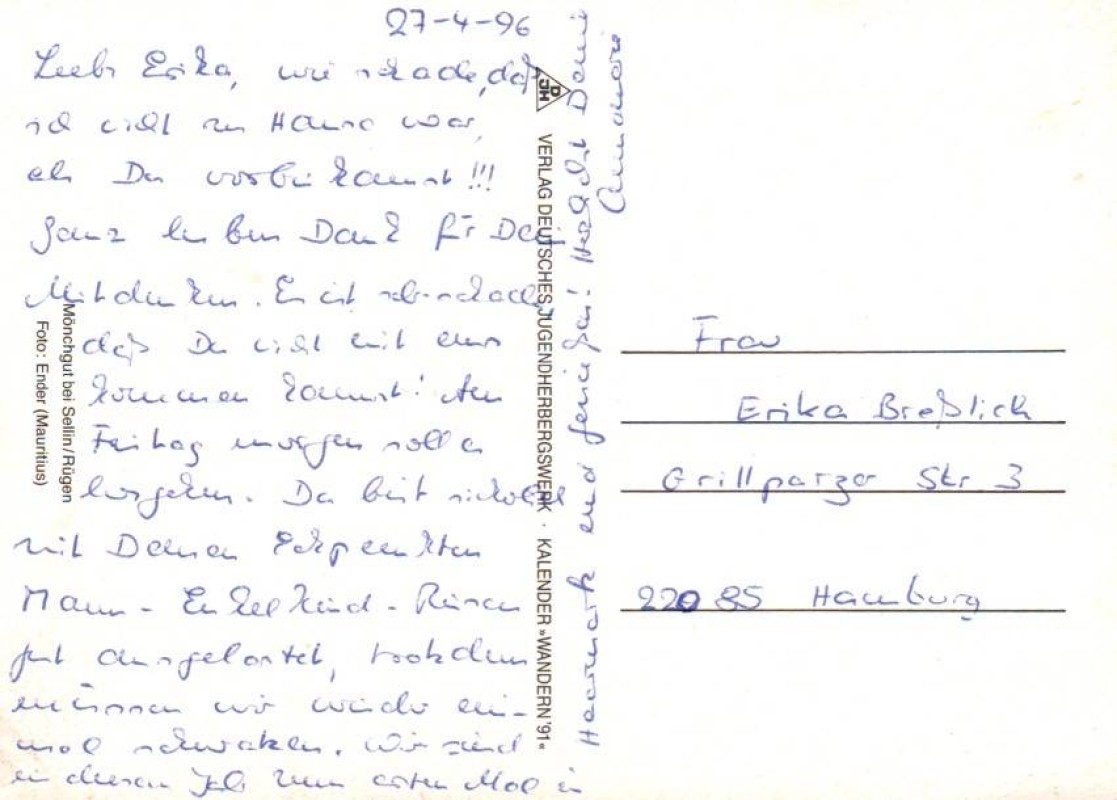 27-4-96
Liebe Erika, wie schade, daß
ich nicht zu Hause war,
als Du vorbei kamst!!!
Ganz lieben Dank für Dein
Mitdenken. Es ist sehr schade,
daß Du nicht mit uns
kommen kannst! Am
Freitag morgen soll es
losgehen. Du bist sicher
mit Deinen Eckpunkten
Mann - Enkelkind - Reisen
gut ausgelastet, trotzdem
müssen wir wieder ein-
mal schwatzen. Wir sind
in diesem Jahr zum ersten Mal in
und genießen!
Annemarie
Mönchgut bei Sellin/Rügen
Foto: Ender (Mauritius)
DJH
VERLAG DEUTSCHES JUGENDHERBERGSWERK · KALENDER »WANDERN '91«
Frau
Erika Breßlich
Grillparzer Str. 3
22085 Hamburg